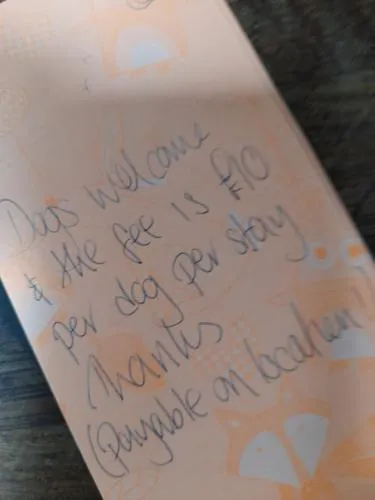 Dogs welcome
& the fee is £10
per dog per stay
Thanks
(Payable on location)